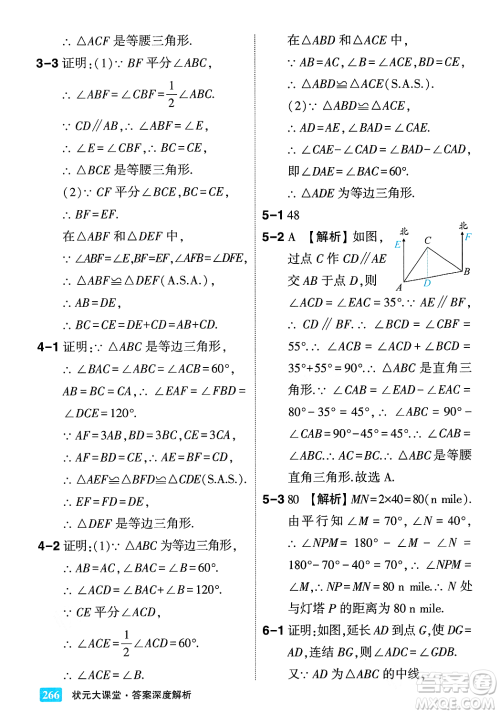 ∴ △ACF 是等腰三角形.
3-3 证明:(1)∵ BF 平分∠ABC,
∴ ∠ABF=∠CBF=1/2∠ABC.
∵ CD∥AB,∴ ∠ABF=∠E,
∴ ∠CBF=∠E,∴ BC=CE,
∴ △BCE 是等腰三角形.
(2)∵ CF 平分∠BCE,
∴ BF=EF.
在△ABF 和△DEF 中,
∵ ∠ABF=∠E,BF=EF,∠AFB=∠DFE,
∴ △ABF≌△DEF(A.S.A.),
∴ AB=DE,
∴ BC=CE=DE+CD=AB+CD.
4-1 证明:∵ △ABC 是等边三角形,
∴ ∠BAC=∠ABC=∠ACB=60°,
AB=BC=CA,∴ ∠EAF=∠FBD=
∠DCE=120°.
∵ AF=3AB,BD=3BC,CE=3CA,
∴ AF=BD=CE,∴ AE=BF=CD,
∴ △AEF≌△BFD≌△CDE(S.A.S.),
∴ EF=FD=DE,
∴ △DEF 是等边三角形.
4-2 证明:(1)∵ △ABC 为等边三角形,
∴ AB=AC,∠BAC=∠B=∠ACB=60°,
∴ ∠ACD=120°.
∵ CE 平分∠ACD,
∴ ∠ACE=1/2∠ACD=60°,
∴ ∠ACE=∠B.
266 状元大课堂·答案深度解析
在△ABD 和△ACE 中,
∵ AB=AC,∠B=∠ACE,BD=CE,
∴ △ABD≌△ACE(S.A.S.).
(2)∵ △ABD≌△ACE,
∴ AD=AE,∠BAD=∠CAE,
∴ ∠CAE-∠CAD=∠BAD-∠CAD,
即∠DAE=∠BAC=60°,
∴ △ADE 为等边三角形.
5-1 48
5-2 A 【解析】如图,
过点 C 作 CD∥AE
交 AB 于点 D,则
北 北
E F
C
A D B
∠ACD=∠EAC=35°.∵ AE∥BF,
∴ CD∥BF.∴ ∠BCD=∠CBF=
55°.∴ ∠ACB=∠ACD+∠BCD=
35°+55°=90°.∴ △ABC 是直角三
角形.∵ ∠CAB=∠EAB-∠EAC=
80°-35°=45°,∴ ∠ABC=90°-
∠CAB=90°-45°=45°.∴ ∠CAB=
∠ABC.∴ CA=CB.∴ △ABC 是等腰
直角三角形.故选 A.
5-3 80 【解析】MN=2×40=80(n mile).
由平行知∠M=70°,∠N=40°,
∴ ∠NPM=180°-∠M-∠N=
180°-70°-40°=70°.∴ ∠NPM=
∠M,∴ NP=MN=80 n mile.∴ 此时
与灯塔 P 的距离为 80 n mile.
6-1 证明:如图,延长 AD 到点 G,使 DG=
AD,连结 BG.∴ ∠ADC=∠GDB.
又∵ AD 是△ABC 的中线,